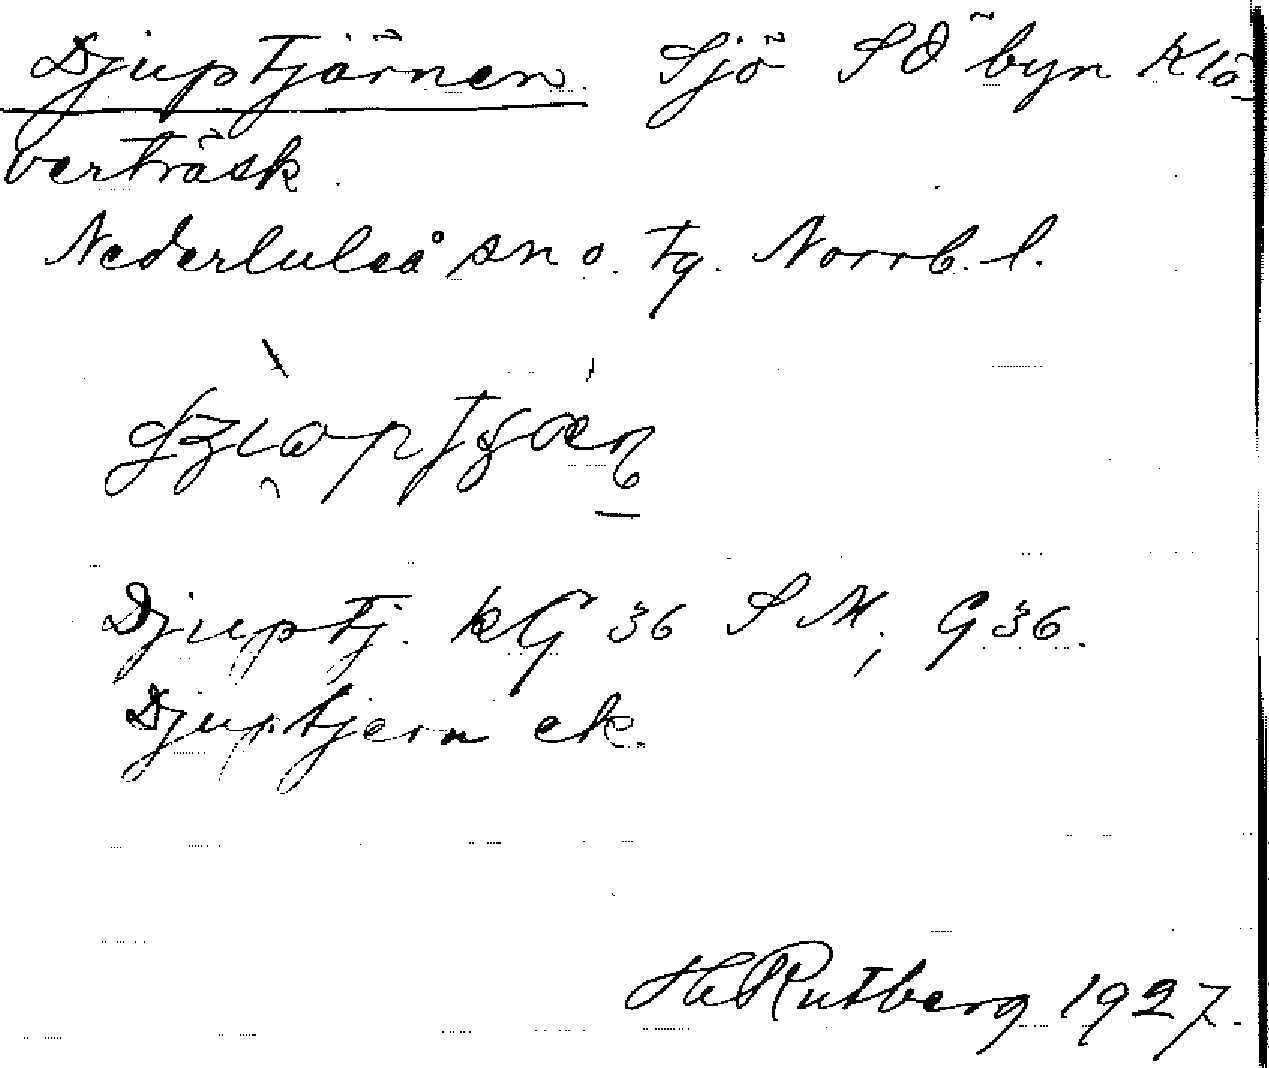 Djuptjärnen Sjö SÖ byn Klö-
verträsk
Nederluleå sn o. tg. Norrb. l.
Djuptj. kG 36 SM, G 36.
Djuptjern ek.
H Rutberg 1927.